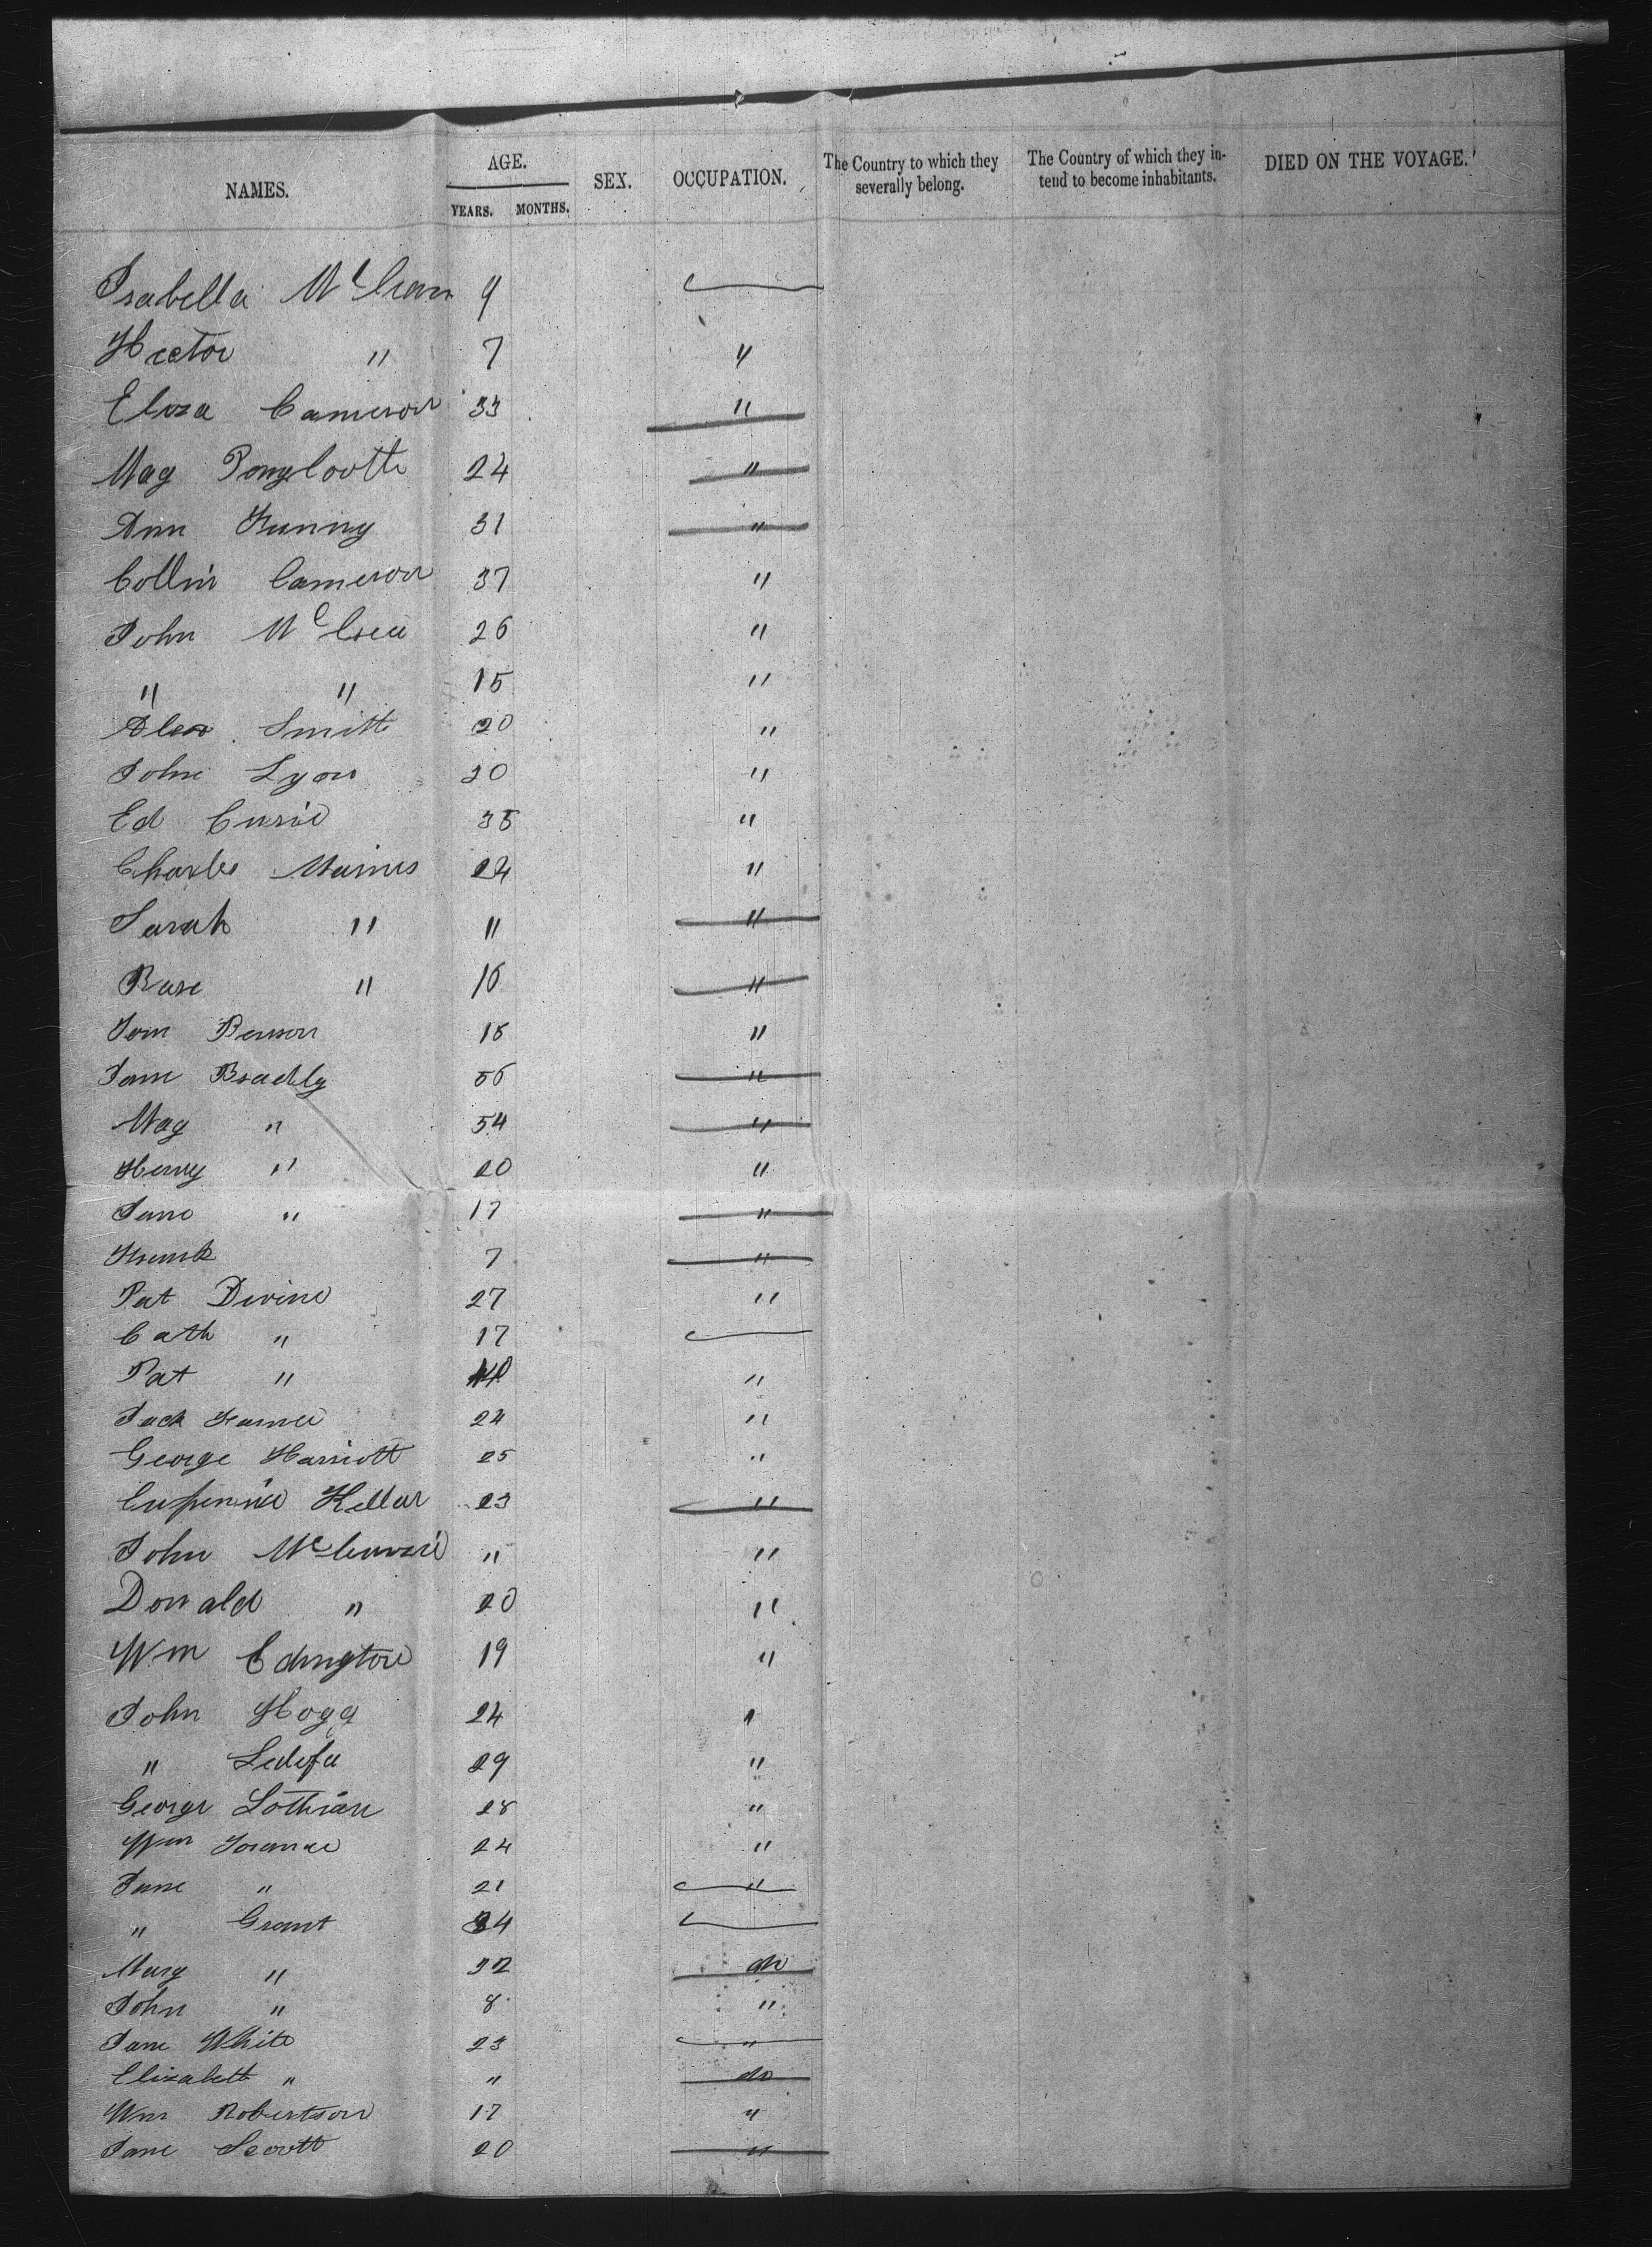 NAMES. AGE. YEARS. MONTHS. SEX. OCCUPATION. The Country to which they severally belong. The Country of which they intend to become inhabitants. DIED ON THE VOYAGE.
Isabella 9
Hector " 7 "
Eliza Cameron 33 "
Mag 24 "
Ann Funny 31 "
Collin Cameron 37 "
John McCrea 26 "
" " 15 "
Alex Smith 20 "
John Lyon 30 "
Ed Currie 35 "
Charles 24 "
Sarah " 11 "
Rose " 16 "
Tom Benson 18 "
Jane Bradly 56 "
Mag " 54 "
Henry " 20 "
Jane " 17 "
Frank 7 "
Pat Divine 27 "
Cath " 17
Pat " "
Jack 24 "
George Harriott 25 "
Kellar 23 "
John " "
Donald " 20 "
Wm Edington 19 "
John Hogg 24 "
" 29 "
George Lothian 28 "
Wm 24 "
Jane " 21 "
" Grant 34
Marg " 32 do
John " 8 "
Jane White 23 "
Elizabeth " " do
Wm Robertson 17 "
Jane Scott 20 "